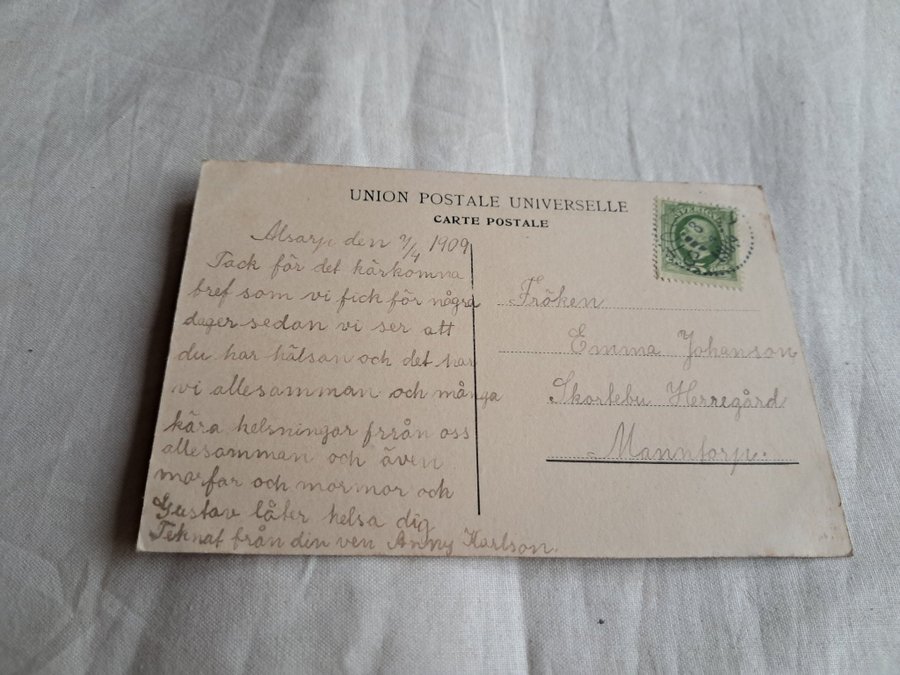 UNION POSTALE UNIVERSELLE
CARTE POSTALE
Alsarp den 7/4 1909
Tack för det kärkomna
bref som vi fick för några
dager sedan vi ser att
du har hälsan och det har
vi allesamman och många
kära helsningar frrån oss
allesamman och även
morfar och mormor och
Gustav låter helsa dig
Teknat från din ven Anny Karlson.
Fröken
Emma Johanson
Skortebu Herregård
Manntorp.